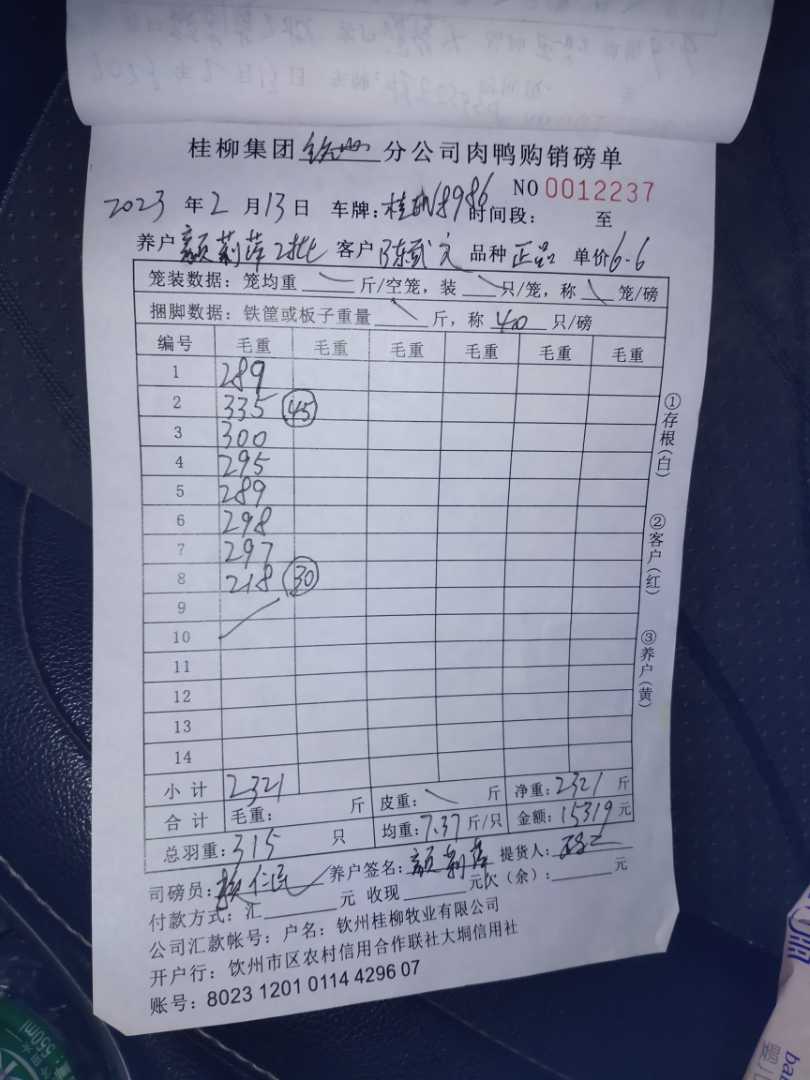 桂柳集团 钦州 分公司肉鸭购销磅单
NO 0012237
2023 年 2 月 13 日 车牌: 桂 8986 时间段: 至
养户 颜莉萍 2批 客户 陈武文 品种 正品 单价 6.6
笼装数据: 笼均重 斤/空笼, 装 只/笼, 称 笼/磅
捆脚数据: 铁筐或板子重量 斤, 称 40 只/磅
编号 毛重 毛重 毛重 毛重 毛重 毛重
1 289
2 335 45
3 300
4 295
5 289
6 298
7 297
8 218 30
9
10
11
12
13
14
小计 2321
合计 毛重: 斤 皮重: 斤 净重: 2321 斤
总羽重: 315 只 均重: 7.37 斤/只 金额: 15319 元
司磅员: 仁民 养户签名: 颜莉萍 提货人:
付款方式: 汇 元 收现 元欠(余): 元
公司汇款帐号: 户名: 钦州桂柳牧业有限公司
开户行: 饮州市区农村信用合作联社大垌信用社
账号: 8023 1201 0114 4296 07
①存根(白)
②客户(红)
③养户(黄)
550ml